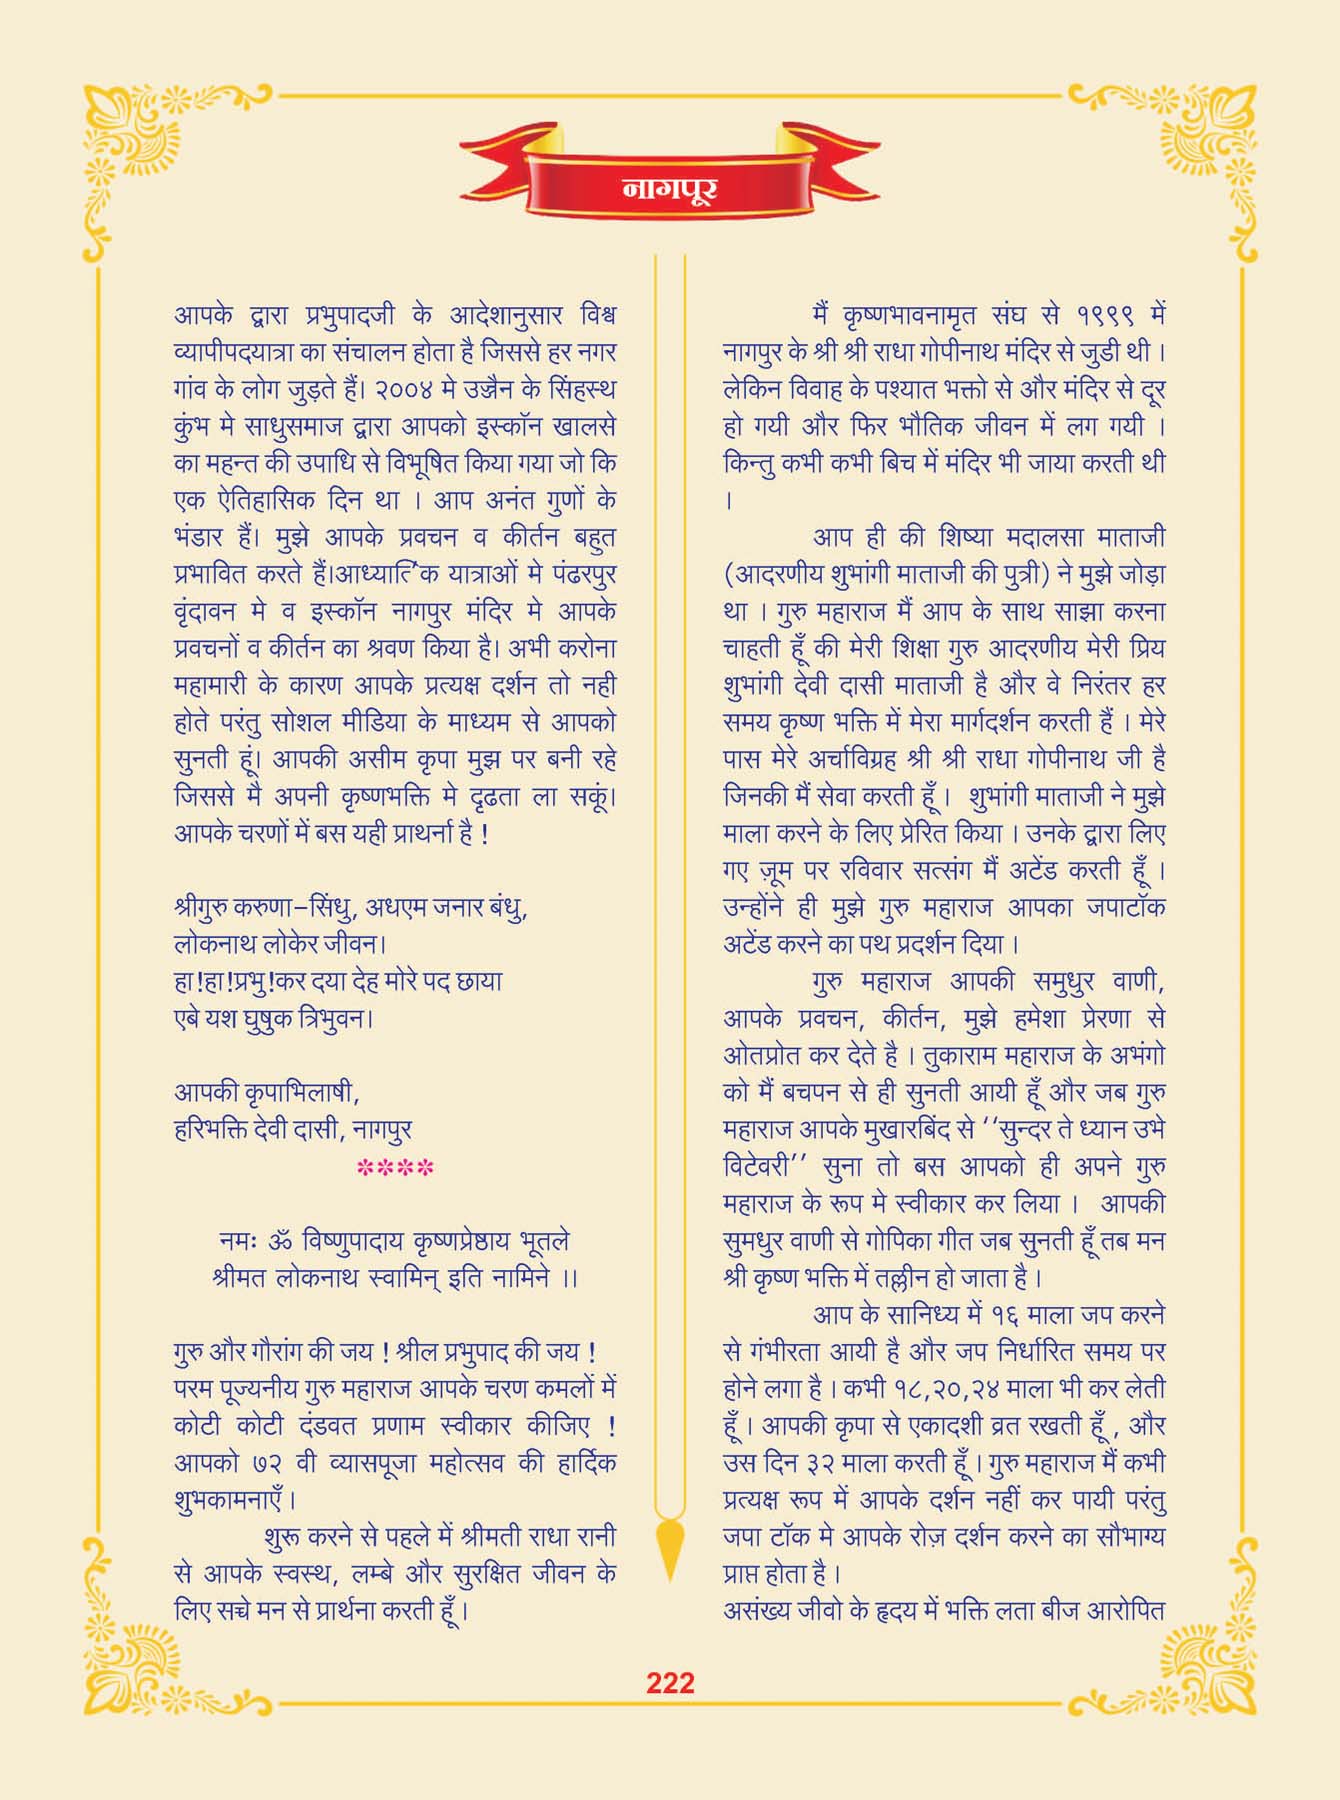 नागपूर
आपके द्वारा प्रभुपादजी के आदेशानुसार विश्व
व्यापीपदयात्रा का संचालन होता है जिससे हर नगर
गांव के लोग जुड़ते हैं। २००४ मे उज्जैन के सिंहस्थ
कुंभ मे साधुसमाज द्वारा आपको इस्कॉन खालसे
का महन्त की उपाधि से विभूषित किया गया जो कि
एक ऐतिहासिक दिन था । आप अनंत गुणों के
भंडार हैं। मुझे आपके प्रवचन व कीर्तन बहुत
प्रभावित करते हैं। यात्राओं मे पंढरपुर
वृंदावन मे व इस्कॉन नागपुर मंदिर मे आपके
प्रवचनों व कीर्तन का श्रवण किया है। अभी करोना
महामारी के कारण आपके प्रत्यक्ष दर्शन तो नही
होते परंतु सोशल मीडिया के माध्यम से आपको
सुनती हूं। आपकी असीम कृपा मुझ पर बनी रहे
जिससे मै अपनी कृष्णभक्ति मे दृढता ला सकूं।
आपके चरणों में बस यही प्राथर्ना है !
श्रीगुरु करुणा-सिंधु, अधएम जनार बंधु,
लोकनाथ लोकेर जीवन।
हा!हा!प्रभु!कर दया देह मोरे पद छाया
एबे यश घुषुक त्रिभुवन।
आपकी कृपाभिलाषी,
हरिभक्ति देवी दासी, नागपुर
****
नमः ॐ विष्णुपादाय कृष्णप्रेष्ठाय भूतले
श्रीमत लोकनाथ स्वामिन् इति नामिने ।।
गुरु और गौरांग की जय ! श्रील प्रभुपाद की जय !
परम पूज्यनीय गुरु महाराज आपके चरण कमलों में
कोटी कोटी दंडवत प्रणाम स्वीकार कीजिए !
आपको ७२ वी व्यासपूजा महोत्सव की हार्दिक
शुभकामनाएँ ।
शुरू करने से पहले में श्रीमती राधा रानी
से आपके स्वस्थ, लम्बे और सुरक्षित जीवन के
लिए सच्चे मन से प्रार्थना करती हूँ ।
मैं कृष्णभावनामृत संघ से १९९९ में
नागपुर के श्री श्री राधा गोपीनाथ मंदिर से जुडी थी ।
लेकिन विवाह के पश्यात भक्तो से और मंदिर से दूर
हो गयी और फिर भौतिक जीवन में लग गयी ।
किन्तु कभी कभी बिच में मंदिर भी जाया करती थी
।
आप ही की शिष्या मदालसा माताजी
(आदरणीय शुभांगी माताजी की पुत्री) ने मुझे जोड़ा
था । गुरु महाराज मैं आप के साथ साझा करना
चाहती हूँ की मेरी शिक्षा गुरु आदरणीय मेरी प्रिय
शुभांगी देवी दासी माताजी है और वे निरंतर हर
समय कृष्ण भक्ति में मेरा मार्गदर्शन करती हैं । मेरे
पास मेरे अर्चाविग्रह श्री श्री राधा गोपीनाथ जी है
जिनकी मैं सेवा करती हूँ । शुभांगी माताजी ने मुझे
माला करने के लिए प्रेरित किया । उनके द्वारा लिए
गए ज़ूम पर रविवार सत्संग मैं अटेंड करती हूँ ।
उन्होंने ही मुझे गुरु महाराज आपका जपाटॉक
अटेंड करने का पथ प्रदर्शन दिया ।
गुरु महाराज आपकी समुधुर वाणी,
आपके प्रवचन, कीर्तन, मुझे हमेशा प्रेरणा से
ओतप्रोत कर देते है । तुकाराम महाराज के अभंगो
को मैं बचपन से ही सुनती आयी हूँ और जब गुरु
महाराज आपके मुखारबिंद से ‘‘सुन्दर ते ध्यान उभे
विटेवरी’’ सुना तो बस आपको ही अपने गुरु
महाराज के रूप मे स्वीकार कर लिया । आपकी
सुमधुर वाणी से गोपिका गीत जब सुनती हूँ तब मन
श्री कृष्ण भक्ति में तल्लीन हो जाता है ।
आप के सानिध्य में १६ माला जप करने
से गंभीरता आयी है और जप निर्धारित समय पर
होने लगा है । कभी १८,२०,२४ माला भी कर लेती
हूँ । आपकी कृपा से एकादशी व्रत रखती हूँ , और
उस दिन ३२ माला करती हूँ । गुरु महाराज मैं कभी
प्रत्यक्ष रूप में आपके दर्शन नहीं कर पायी परंतु
जपा टॉक मे आपके रोज़ दर्शन करने का सौभाग्य
प्राप्त होता है ।
असंख्य जीवो के हृदय में भक्ति लता बीज आरोपित
222